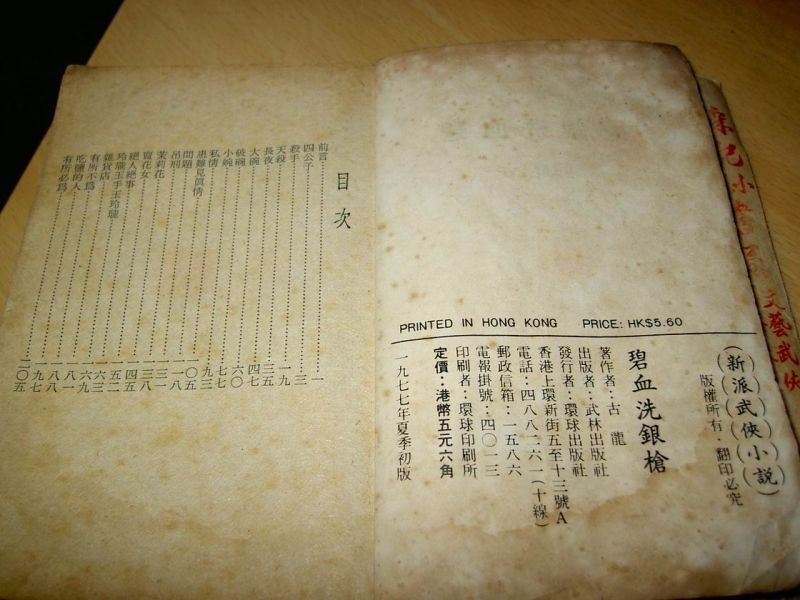 PRINTED IN HONG KONG PRICE: HK$5.60
(新派武俠小說)
版權所有．翻印必究
碧血洗銀槍
著作者：古龍
出版者：武林出版社
發行者：環球出版社
香港上環新街五至十三號A
電話：四八八二六一(十線)
郵政信箱：一五八六
電報掛號：四〇一三
印刷者：環球印刷所
定價：港幣五元六角
一九七七年夏季初版
目次
前言……一
四公子……三
殺手……一九
天殺……三五
長夜……四七
大碗……六〇
破碗……七七
小碗……九三
私情……一〇五
患難見眞情……一一八
問題……一三一
吊刑……一三八
茉莉花……一四五
賣花女……一五二
絕人絕事……一六三
玲瓏玉手玉玲瓏……一六九
雜貨店……一八一
有所不爲……一八八
吃鹽的人……一九七
有所必爲……二〇五
文藝武俠